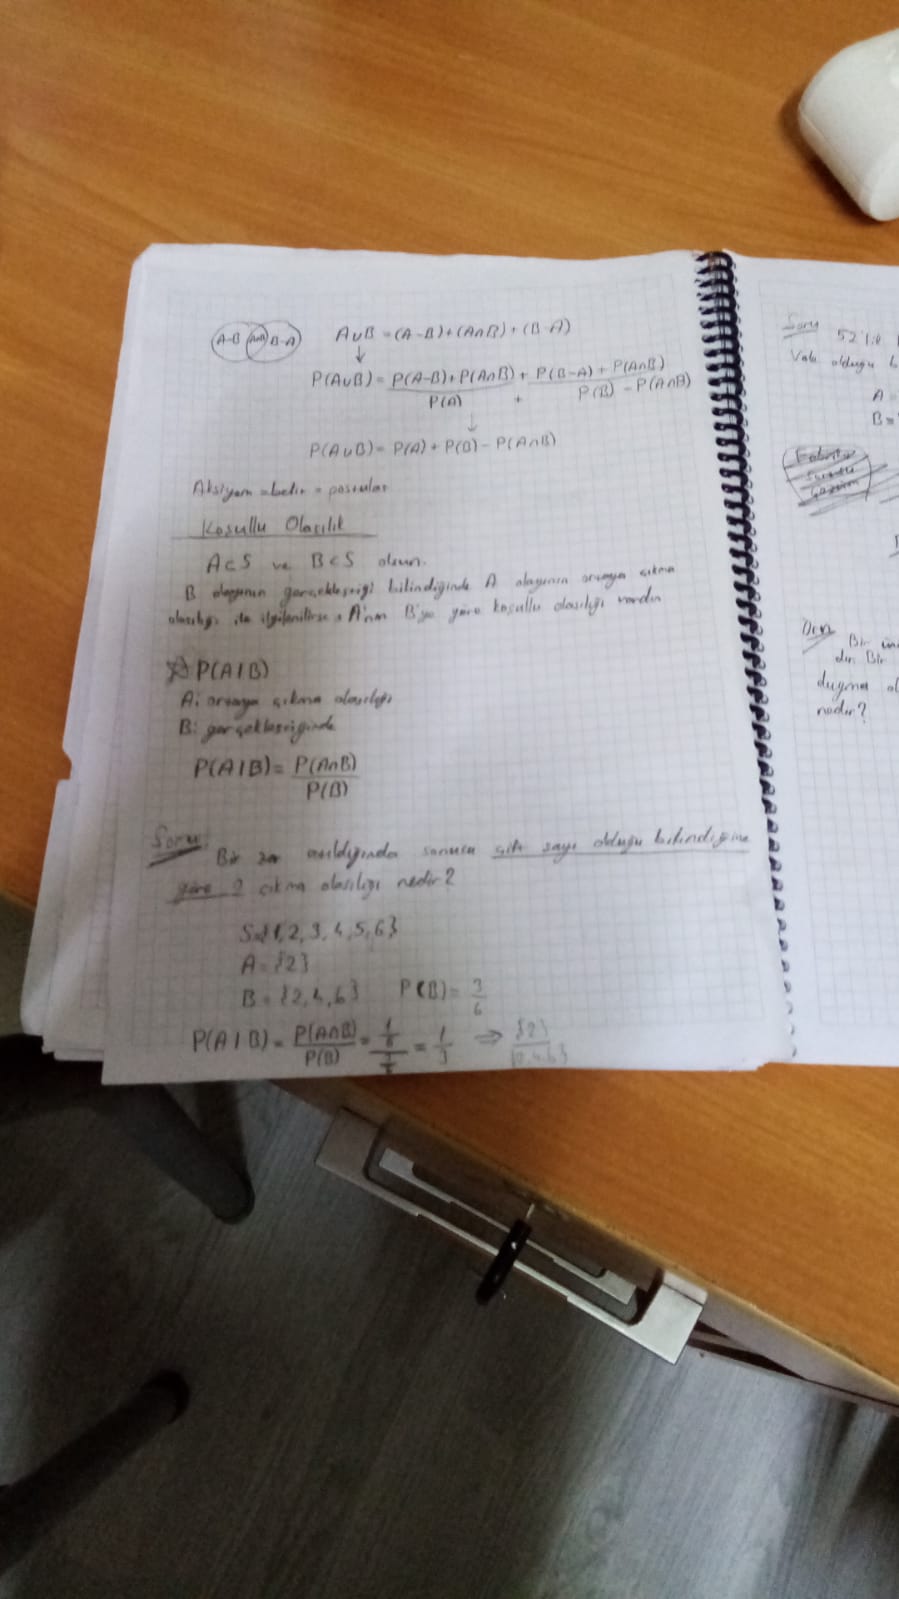 A-B A∩B B-A
A∪B = (A-B)+(A∩B)+(B-A)
↓
P(A∪B) = P(A-B)+P(A∩B) + P(B-A) + P(A∩B)
P(A) + P(B) - P(A∩B)
↓
P(A∪B) = P(A) + P(B) - P(A∩B)
Aksiyom =
Koşullu Olasılık
A⊂S ve B⊂S olsun.
B olayının gerçekleştiği bilindiğinde A olayının ortaya çıkma
olasılığı ile ilgilenilirse, A'nın B'ye göre koşullu olasılığı
P(A|B)
A: ortaya çıkma olasılığı
B: gerçekleştiğinde
P(A|B) = P(A∩B)
P(B)
Soru:
Bir zar atıldığında sonucu çift sayı olduğu bilindiğine
göre 2 çıkma olasılığı nedir?
S={1,2,3,4,5,6}
A={2}
B={2,4,6} P(B)= 3/6
P(A|B) = P(A∩B) / P(B) = = 1/3 ⇒ {2} / {2,4,6}
Soru 52'lik
olduğu
A =
B =
Örn Bir
dır. Bir
düğme
nedir?